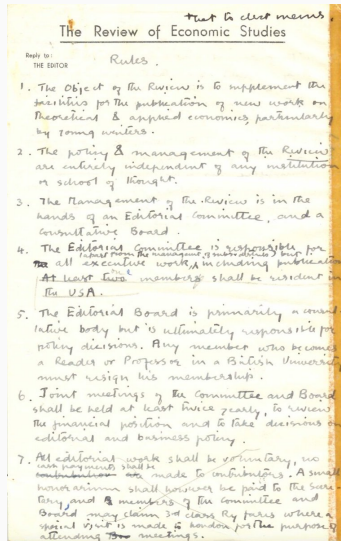 that to elect mems.
The Review of Economic Studies
Reply to:
THE EDITOR
Rules.
1. The Object of the Review is to supplement the
facilities for the publication of new work on
theoretical & applied economics, particularly
by young writers.
2. The policy & management of the Review
are entirely independent of any institution
or school of thought.
3. The Management of the Review is in the
hands of an Editorial Committee, and a
Consultative Board.
4. The Editorial Committee is responsible for
(apart from the management of subscriptions) but
all executive work, including publication
At least two members shall be resident in
the USA.
5. The Editorial Board is primarily a consul
tative body but is ultimately responsible for
policy decisions. Any member who becomes
a Reader or Professor in a British University
must resign his membership.
6. Joint meetings of the Committee and Board
shall be held at least twice yearly, to review
the financial position and to take decisions on
editorial and business policy.
7. All editorial work shall be voluntary, no
cash payments shall be
made to contributors. A small
honorarium shall however be paid to the Secre
tary, and members of the Committee and
Board may claim 3rd class Ry fares where a
special visit is made to London for the purpose of
attending meetings.